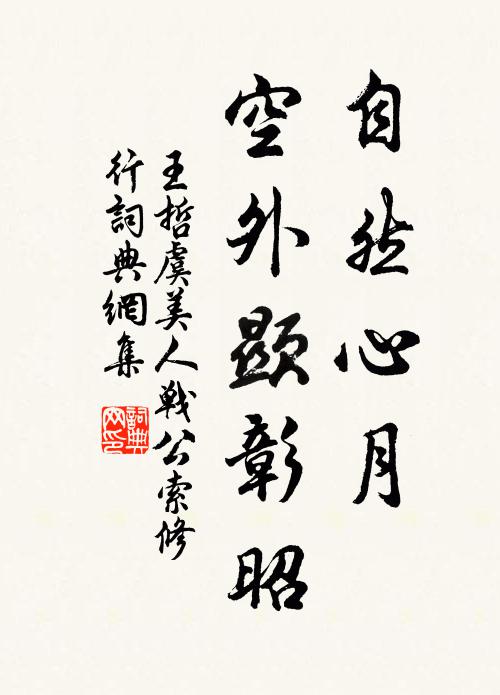 自然心月
空外顯彰昭
王哲虞美人戰公索修
行詞典網集
詞典
网印